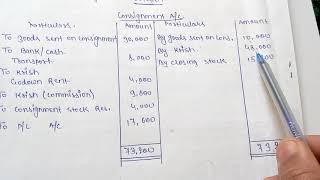 Consignment A/c
Particulars. Amount Particulars Amount
To Goods sent on consignment 20,000 By goods sent on Cons. 10,000
To Bank/cash By Krish. 48,000
Transport 8,000 By closing stock
To Krish
Godown Rent 4,000
To Krish (commission) 9,600
To Consignment stock Res. 4,000
To P/L A/c 17,600
73,200